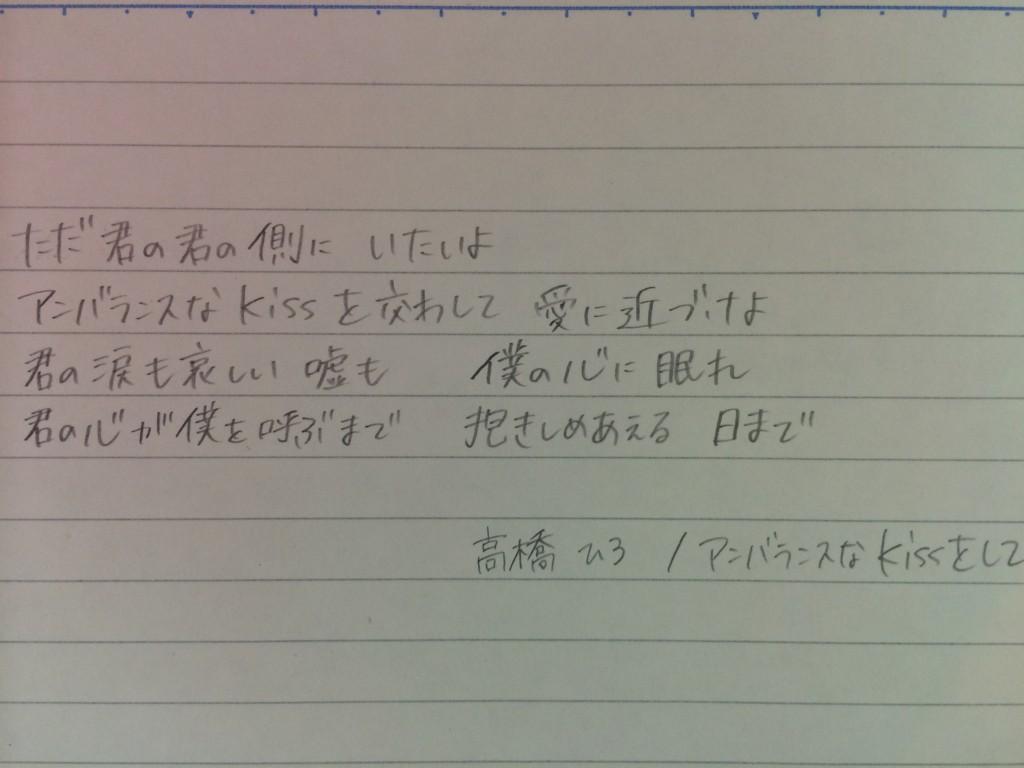 ただ 君の君の側に いたいよ
アンバランスなkissを交わして 愛に近づけよ
君の涙も哀しい 嘘も 僕の心に 眠れ
君の心が僕を呼ぶまで 抱きしめあえる 日まで
高橋 ひろ / アンバランスなkissをして